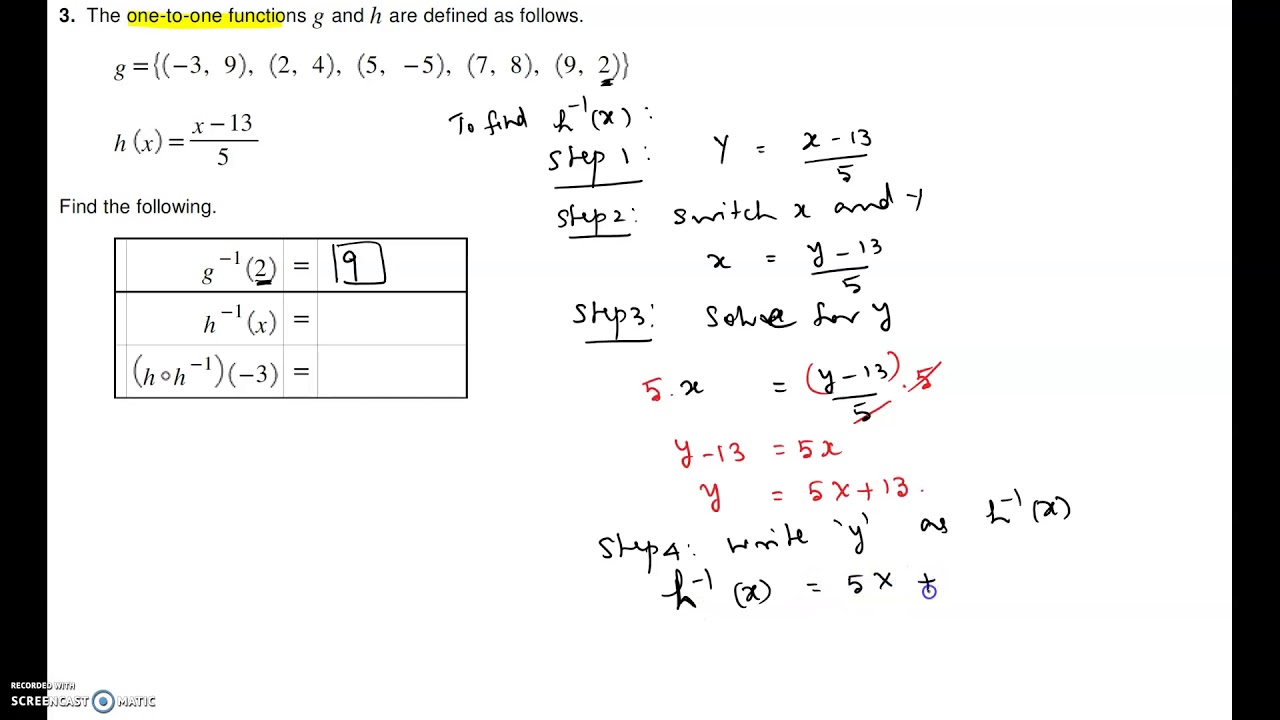 3. The one-to-one functions g and h are defined as follows.
g = {(−3, 9), (2, 4), (5, −5), (7, 8), (9, 2)}
h(x) = x − 13 / 5
Find the following.
g⁻¹(2) = 9
h⁻¹(x) =
(h ∘ h⁻¹)(−3) =
To find h⁻¹(x) :
Step 1 : Y = x − 13 / 5
Step 2 : switch x and y
x = y − 13 / 5
Step 3 : Solve for y
5 . x = (y − 13) / 5 . 5
y − 13 = 5x
y = 5x + 13 .
Step 4 : write 'y' as h⁻¹(x)
h⁻¹(x) = 5x +
RECORDED WITH
SCREENCAST MATIC